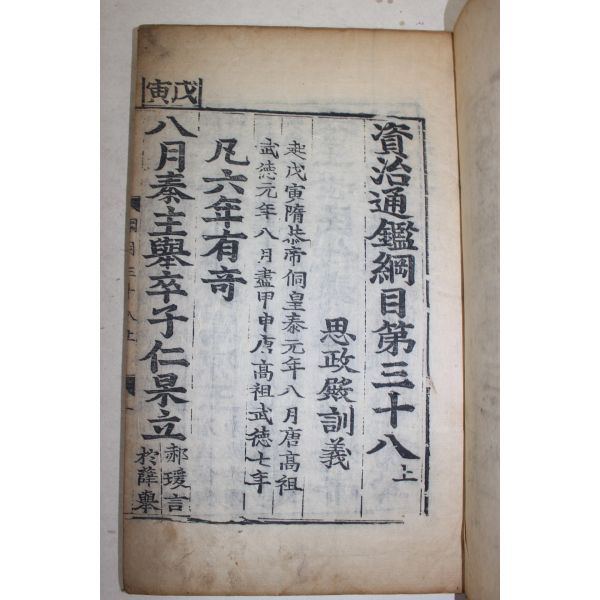 資治通鑑綱目第三十八上
思政殿訓義
起戊寅隋恭帝侗皇泰元年八月唐高祖
武德元年八月盡甲申唐高祖武德七年
凡六年有奇
戊寅
八月秦主舉卒子仁杲立
郝瑗言
於薛舉
綱目三十八上